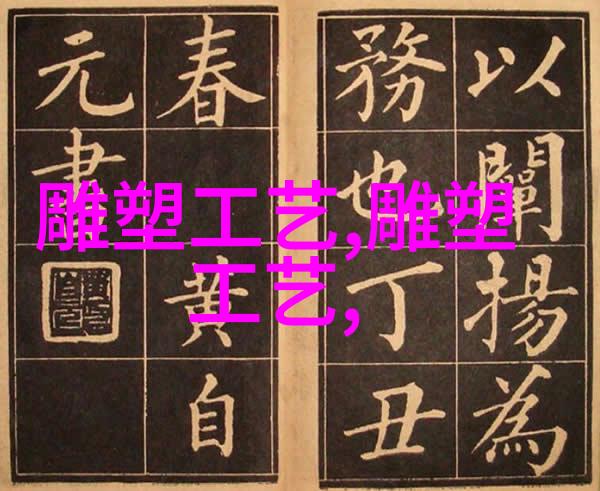 以闡揚為
務也丁丑
春
黄自
元書
雕塑工艺,雕塑
工艺,